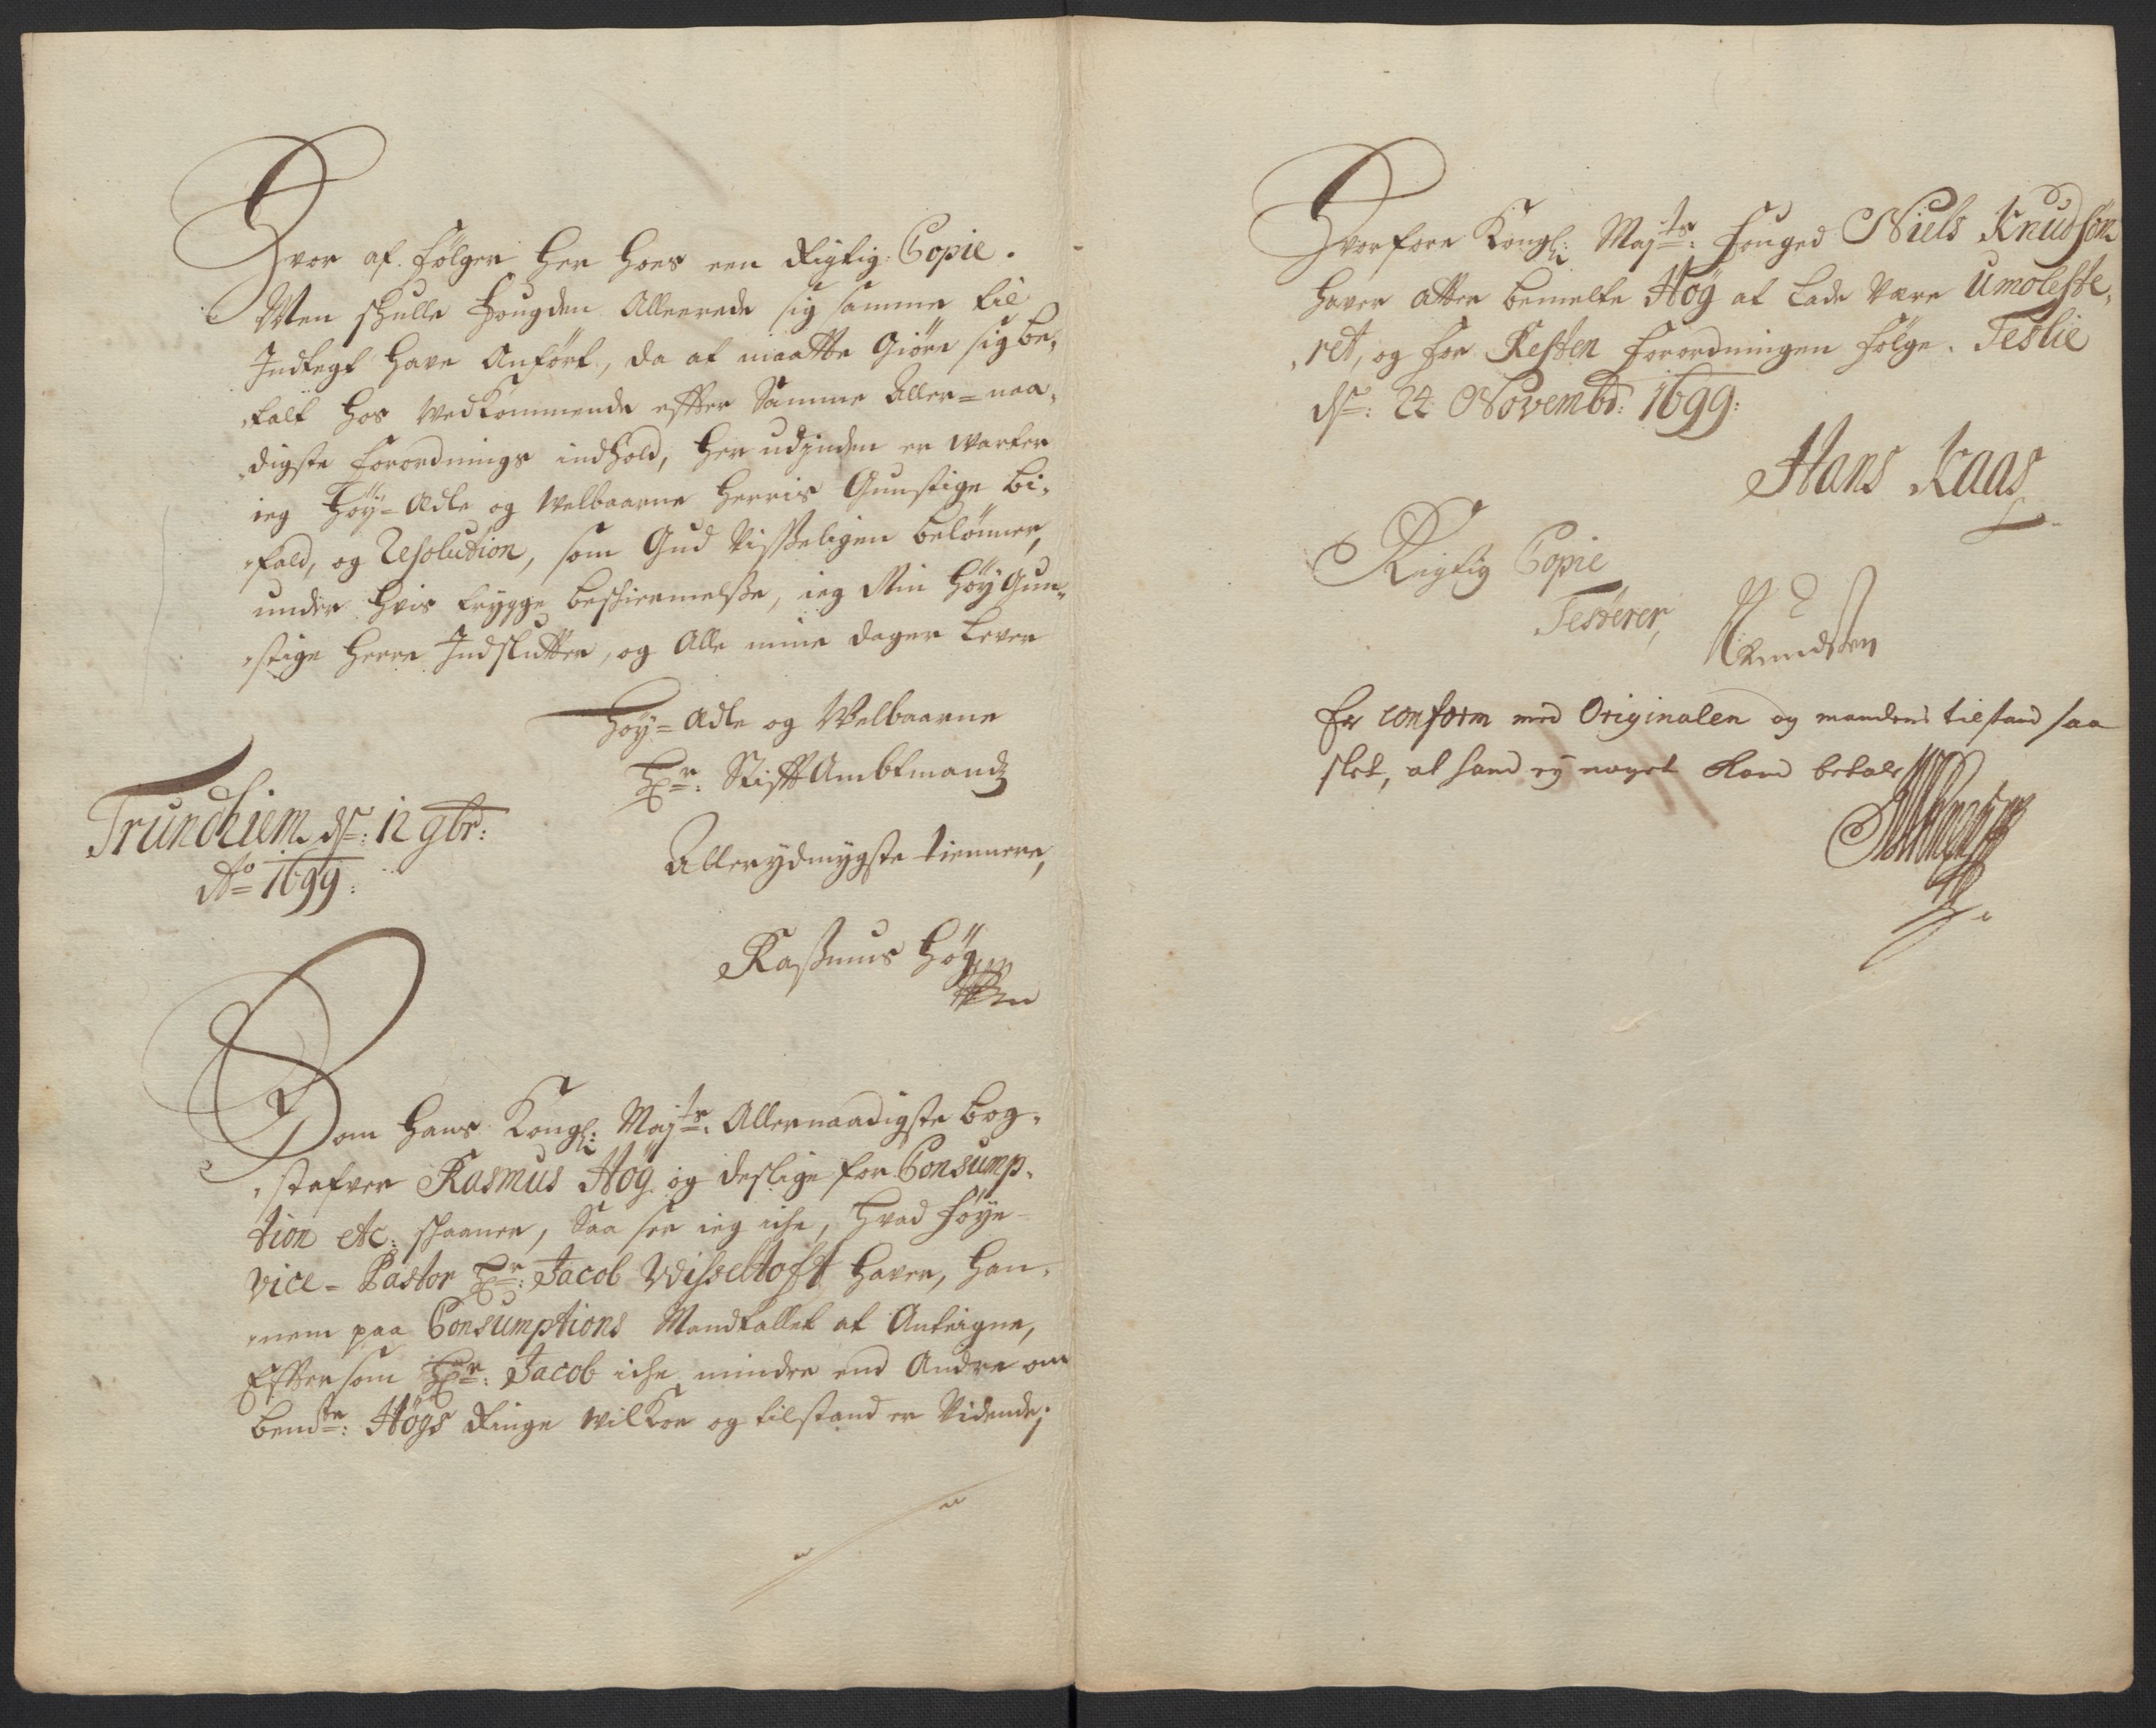 Hvor af følger her hoes een Rigtig Copie.
Men skulle Fougden Allereede sig samme til
Indtegt have Anført, da at maatte Giøre sig be,
,talt hos vedkommende effter Samme Aller=naa,
,digste forordnings indhold, her udjnden er warter
ieg Høy=Ædle og Welbaarne Herris Gunstige bi,
,fald, og Resolution, som Gud visseligen belønner,
under hvis trygge beskiermelsse, ieg Min Høy Gun,
,stige Herre Indslutter, og Alle mine dager Lever
Høy=Ædle og Welbaarne
Hr: Stifft Ambtmandz
Trundhiem ds: 12 9br:
Ao 1699:
Allerydmygste tiennere,
Rasmus Høg
Som Hans Kongl: Majts: Allernaadigste bog,
,stafver Rasmus Høg og deslige for Consump,
tion etc: skaaner, Saa seer ieg iche, hvad føye
Vice=Pastor Hr: Jacob Wisseltoft haver, han,
,nem paa Consumptions Mandtallet at Anteigne,
Effter som Hr: Jacob iche mindre end Andre om
bemte: Høgs Ringe wilkor og tilstand er vidende;
Hvorfore Kongl: Majts: Fouged Niels Knudsøn
haver atter bemelte Høg at lade være Umoleste,
,ret, og for Resten forordningen følge. Teslie
ds: 24 Novembr: 1699:
Hans Kaas
Rigtig Copie
Testerer,
Knudsen
Er conform med Originalen og mandens tilstand saa
slet, at hand ej noget kand betale